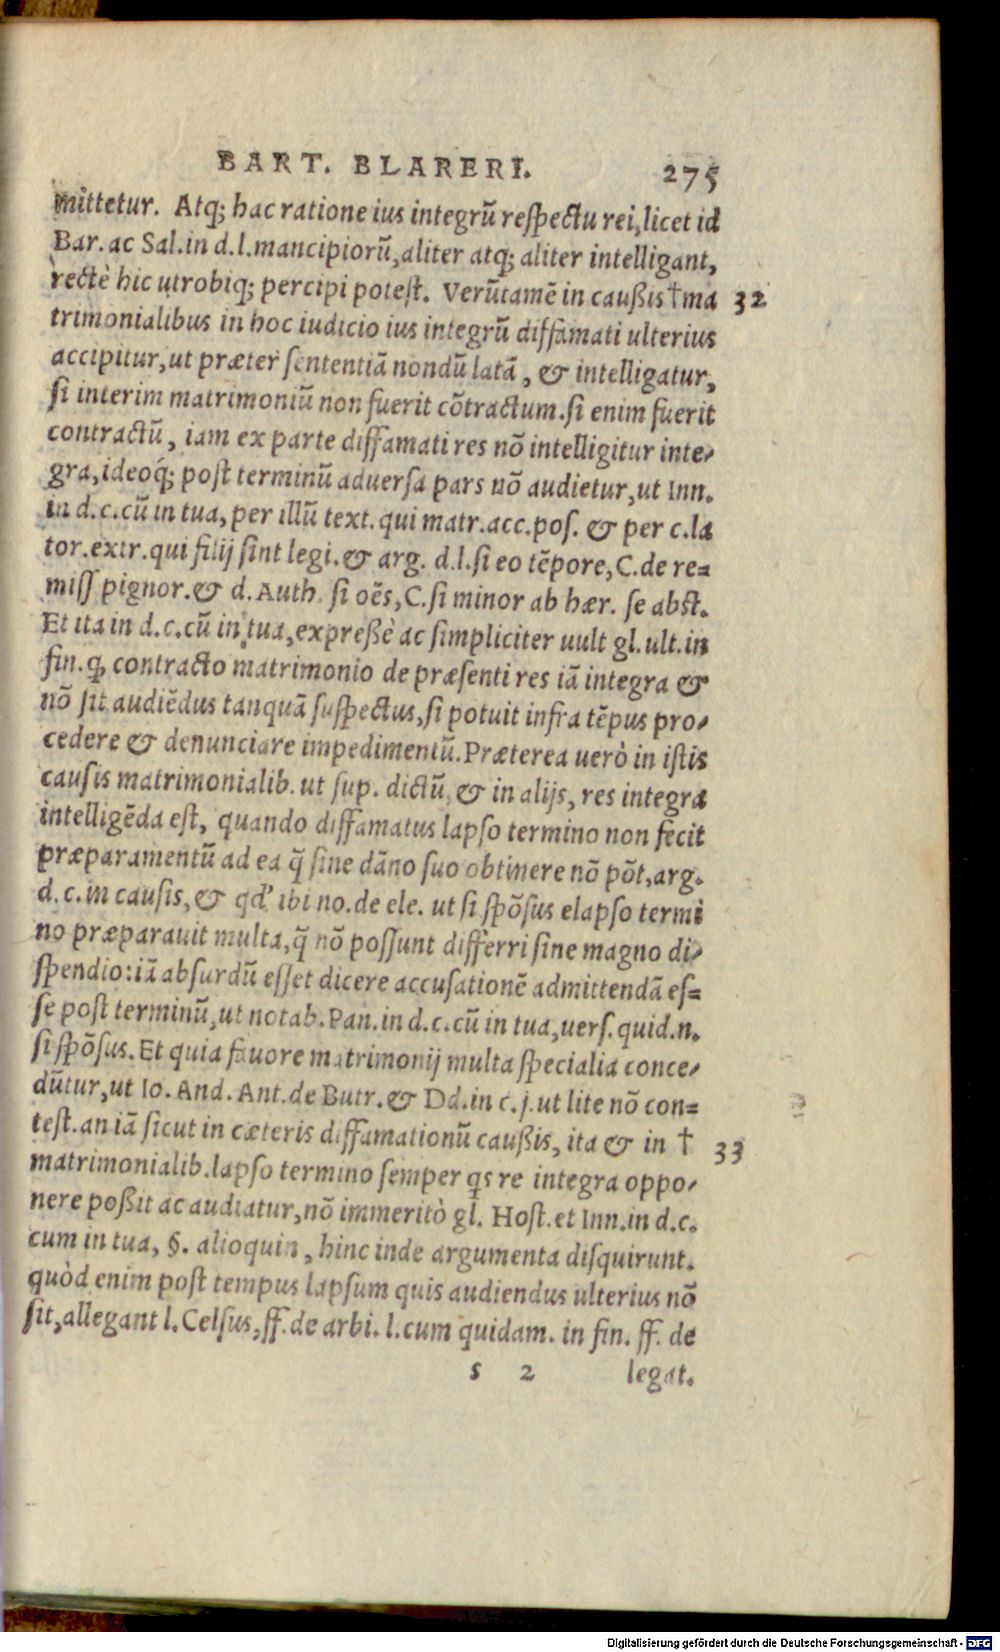 BART. BLARERI. 275
mittetur. Atq; hac ratione ius integrũ reſpectu rei, licet id
Bar. ac Sal. in d. l. mancipiorũ, aliter atq; aliter intelligant,
rectè hic utrobiq; percipi poteſt. Verũtamẽ in cauſsis † ma 32
trimonialibus in hoc iudicio ius integrũ diffamati ulterius
accipitur, ut præter ſententiã nondũ latã, & intelligatur,
ſi interim matrimoniũ non fuerit cõtractum. ſi enim fuerit
contractũ, iam ex parte diffamati res nõ intelligitur inte-
gra, ideoq́; poſt terminũ aduerſa pars nõ audietur, ut Inn.
in d. c. cũ in tua, per illũ text. qui matr. acc. poſ. & per c. la
tor. extr. qui filij ſint legi. & arg. d. l. ſi eo tẽpore, C. de re=
miſſ pignor. & d. Auth ſi oẽs, C. ſi minor ab hær. ſe abſt.
Et ita in d. c. cũ in tua, expreſsè ac ſimpliciter uult gl. ult. in
fin. ꝙ contracto matrimonio de præſenti res iã integra &
nõ ſit audiẽdus tanquã ſuſpectus, ſi potuit infra tẽpus pro-
cedere & denunciare impedimentũ. Præterea uerò in iſtis
cauſis matrimonialib. ut ſup. dictũ, & in alijs, res integra
intelligẽda eſt, quando diffamatus lapſo termino non fecit
præparamentũ ad ea q̃ ſine dãno ſuo obtinere nõ põt, arg.
d. c. in cauſis, & qd' ibi no. de ele. ut ſi ſpõſus elapſo termi
no præparauit multa, q̃ nõ poſſunt differri ſine magno di-
ſpendio: iã abſurdũ eſſet dicere accuſationẽ admittendã eſ=
ſe poſt terminũ, ut notab. Pan. in d. c. cũ in tua, uerſ. quid. n.
ſi ſpõſus. Et quia fauore matrimonij multa ſpecialia conce-
dũtur, ut Io. And. Ant. de Butr. & Dd. in c. j. ut lite nõ con=
teſt. an iã ſicut in cæteris diffamationũ cauſsis, ita & in † 33
matrimonialib. lapſo termino ſemper qs re integra oppo-
nere poſsit ac audiatur, nõ immeritò gl. Hoſt. et Inn. in d. c.
cum in tua, §. alioquin, hinc inde argumenta diſquirunt.
quòd enim poſt tempus lapſum quis audiendus ulterius nõ
ſit, allegant l. Celſus, ff. de arbi. l. cum quidam. in fin. ff. de
s 2 legat.
Digitalisierung gefördert durch die Deutsche Forschungsgemeinschaft - DFG